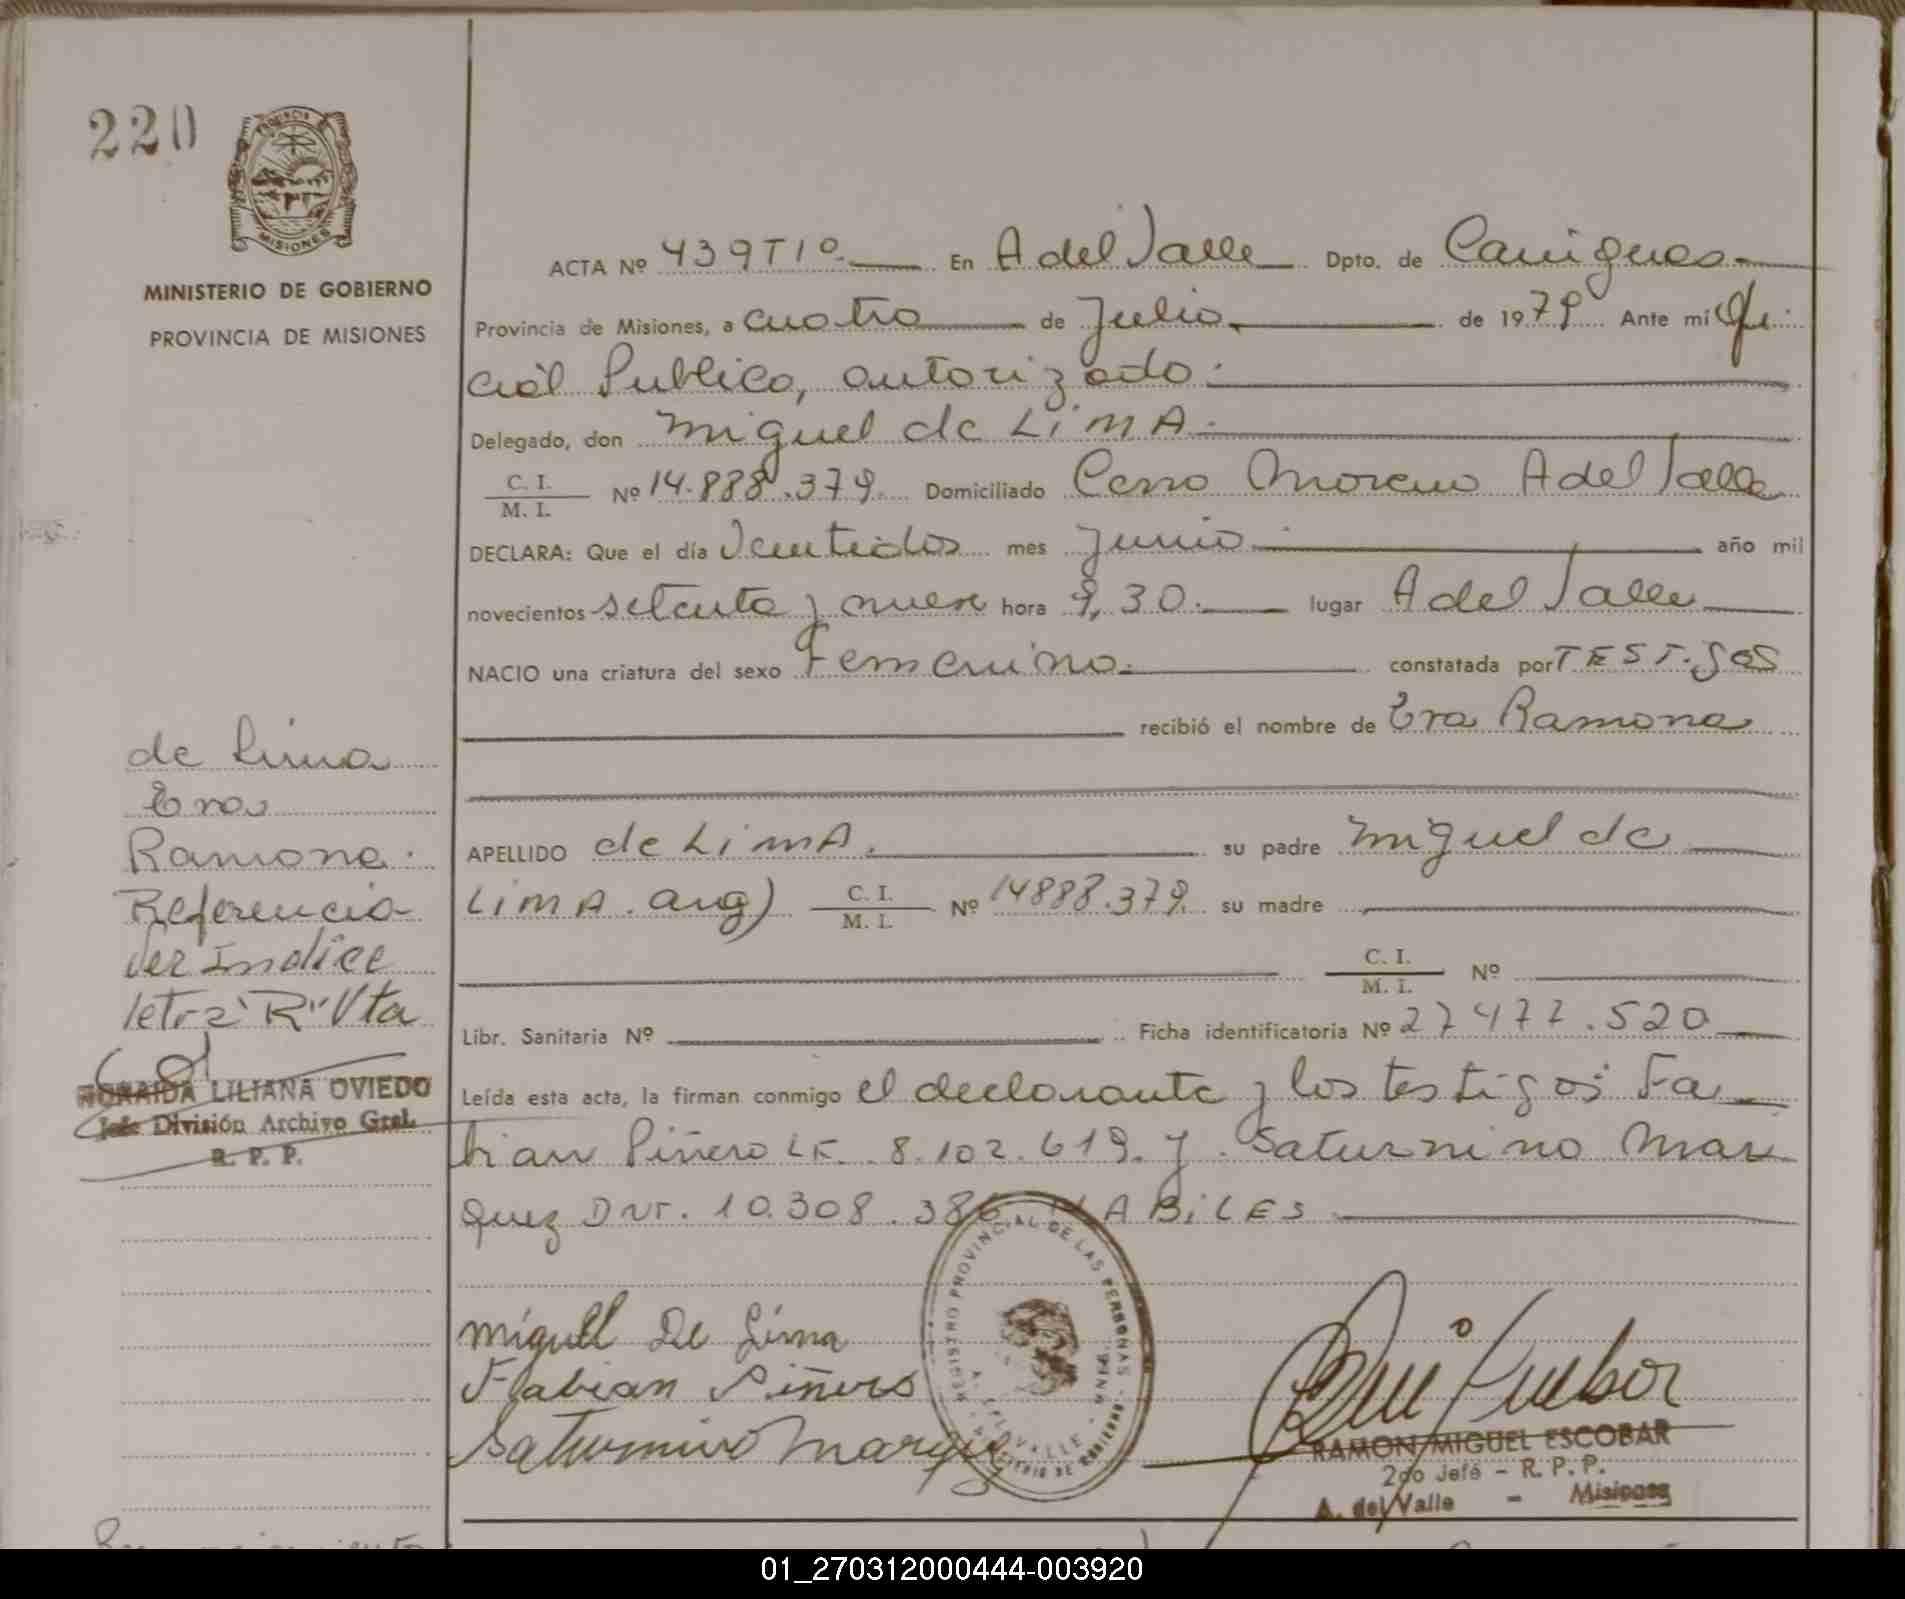 220
PROVINCIA DE
MISIONES
MINISTERIO DE GOBIERNO
PROVINCIA DE MISIONES
ACTA Nº 439 T 1º. En A del Valle Dpto. de Cainguas
Provincia de Misiones, a cuatro de Julio de 1979 Ante mi Ofi-
cial Publico, autorizado.
Delegado, don Miguel de LiMA.
C. I.
M. I. Nº 14.888.379. Domiciliado Cerro Moreno A del Valle
DECLARA: Que el día Ventidos mes Junio año mil
novecientos setenta y nueve hora 9,30. lugar A del Valle
NACIO una criatura del sexo Femenino. constatada por TEST.
recibió el nombre de Ramona
APELLIDO de LimA. su padre Miguel de
LiMA. arg) C. I.
M. I. Nº 14888.379. su madre
C. I.
M. I. Nº
Libr. Sanitaria Nº Ficha identificatoria Nº 27477.520
Leída esta acta, la firman conmigo el declarante y los testigos Fa
bian Piñero LE. 8.102.619. y Saturnino Mar
quez DNI. 10.308.386 HABiLES
Miguel De Lima
Fabian Piñero
Saturnino Marquez
REGISTRO PROVINCIAL DE LAS PERSONAS
A. DEL VALLE
MINISTERIO DE GOBIERNO
RAMON MIGUEL ESCOBAR
2do Jefe - R. P. P.
A. del Valle - Misiones
de Lima
Ramona.
Referencia
Ver Indice
letra "R" Vta
LILIANA OVIEDO
Jefe División Archivo Gral.
R. P. P.
01_270312000444-003920